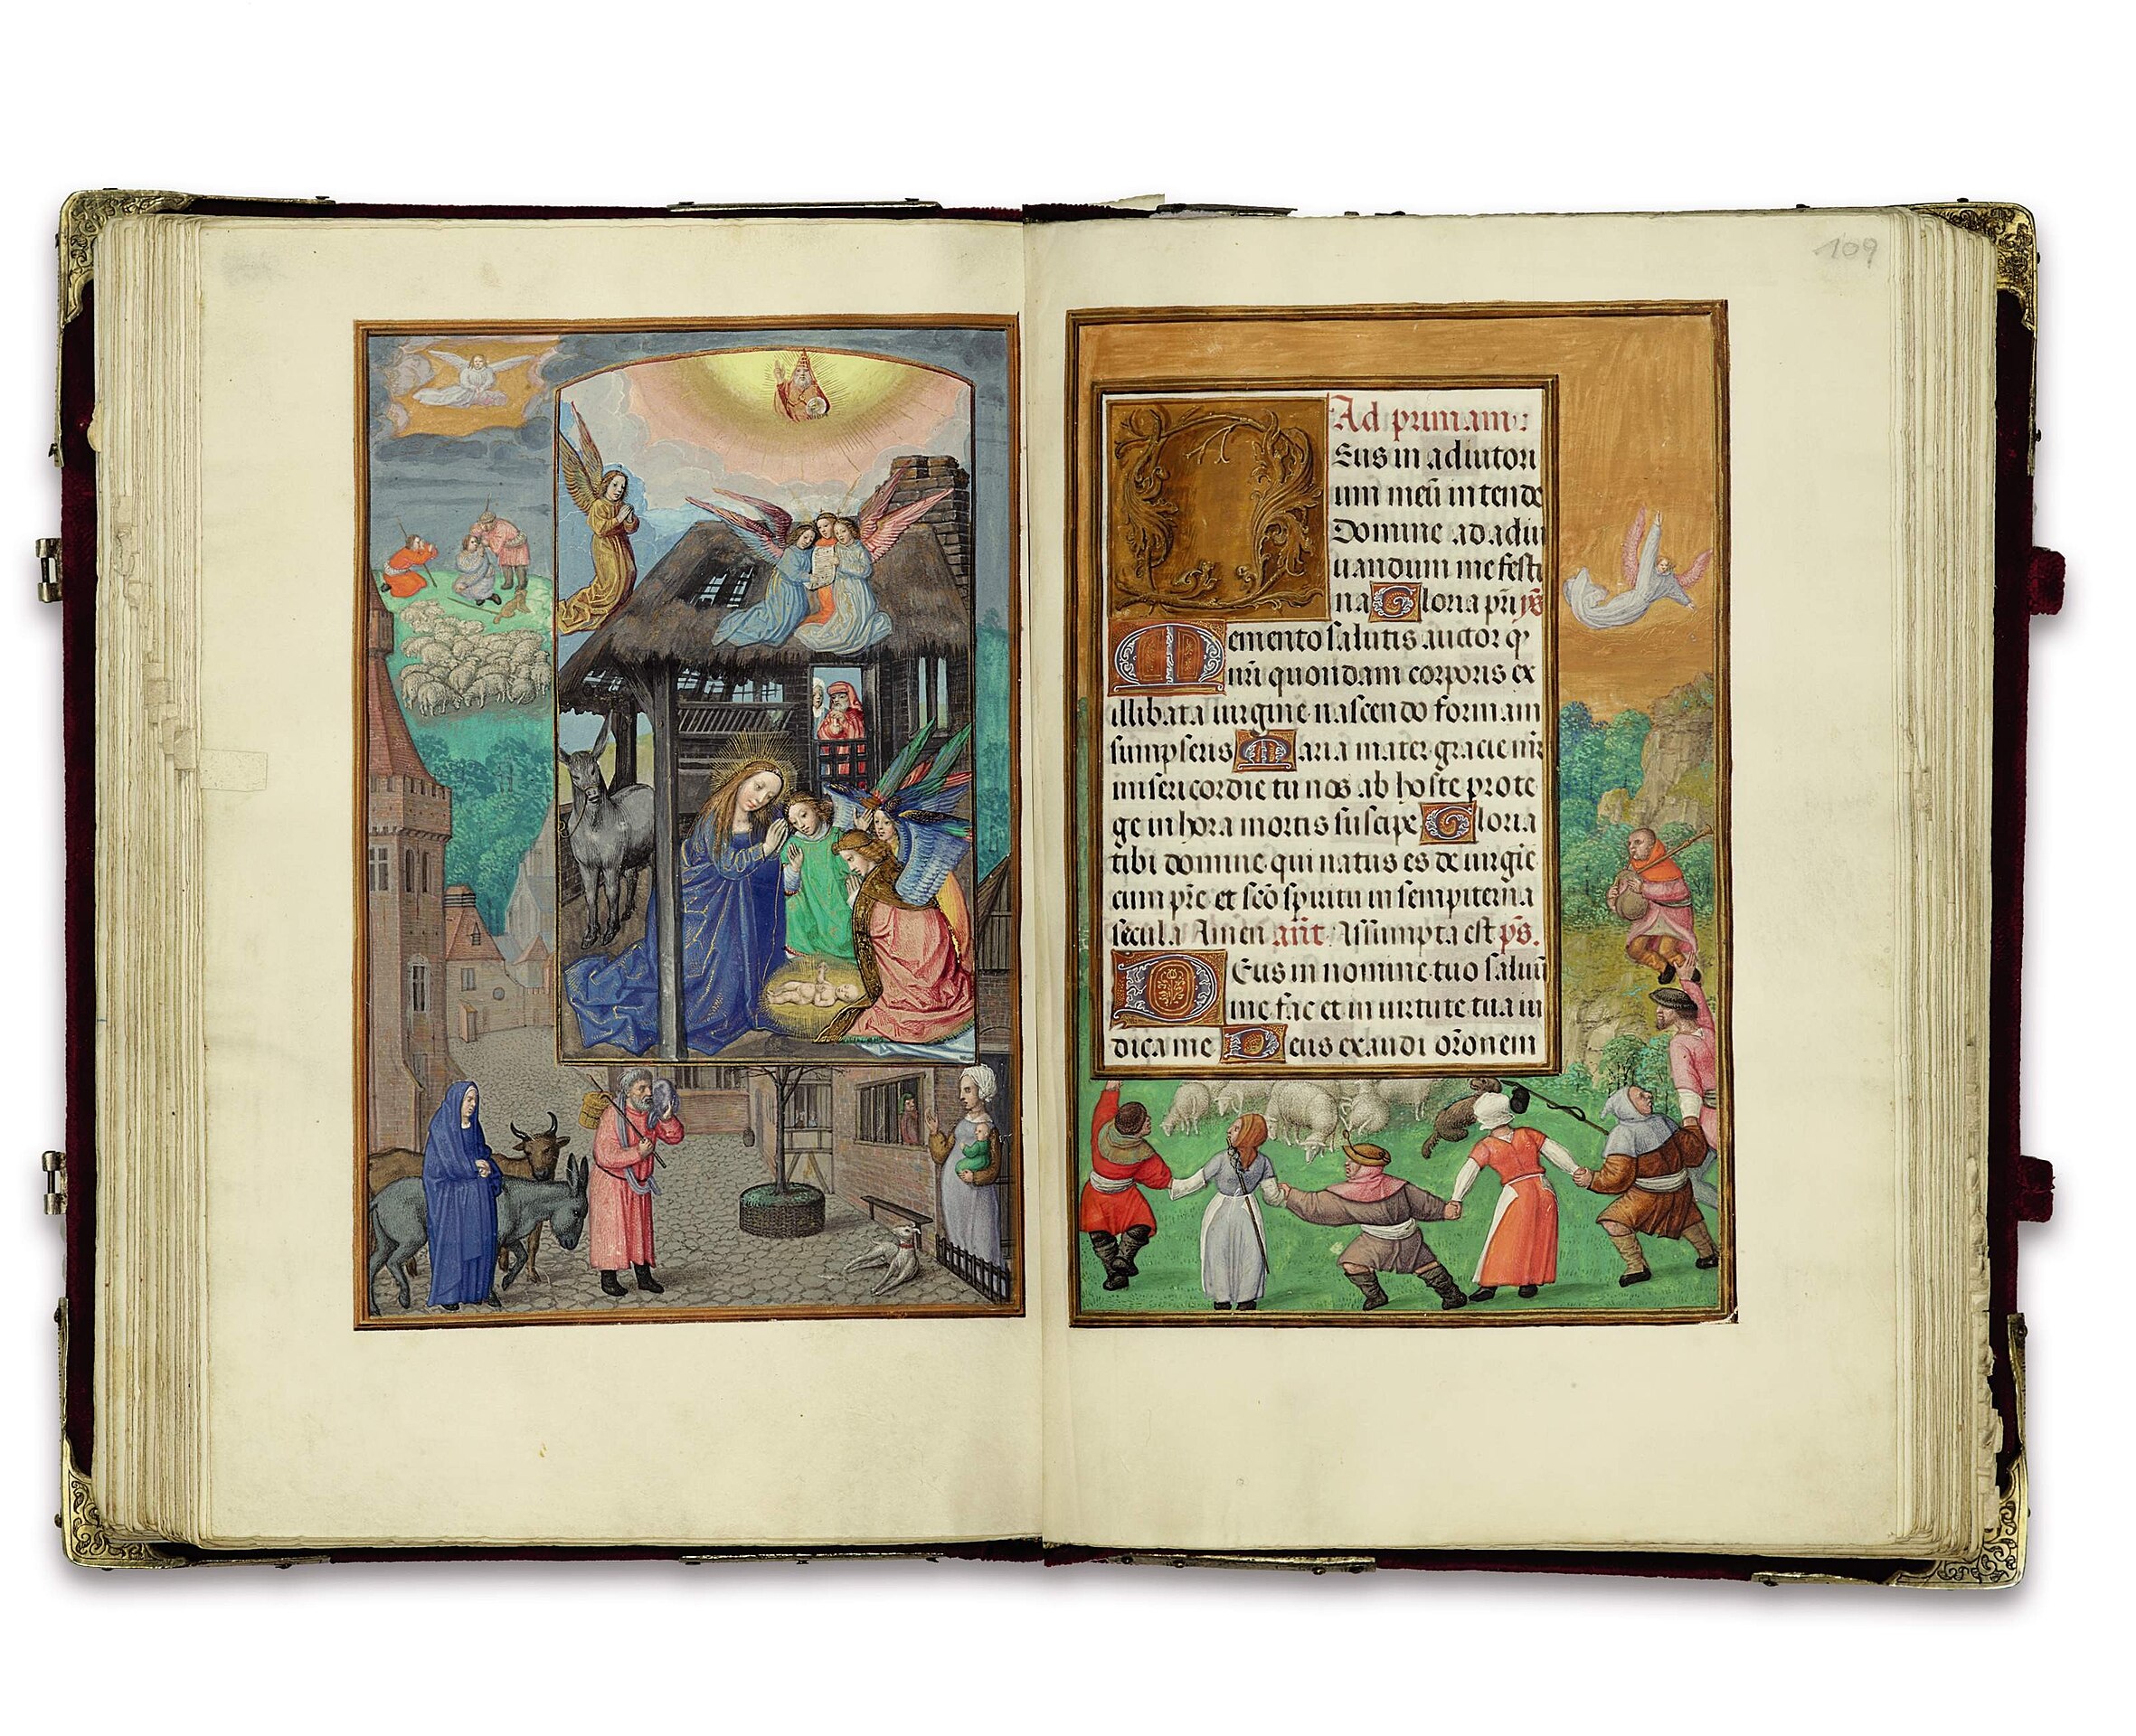 109
Ad primam:
Eus in adiutori
um meū intende
Domine ad adiu
uandum me festi
na Gloria pr̄i ps̄
Memento salutis auctor q
ur̄i quondam corporis ex
illibata uirgine nascendo formam
sumpseris Maria mater gracie mr̄
misericordie tu nos ab hoste prote
ge in hora mortis suscipe Gloria
tibi domine qui natus es de uirgīe
cum pr̄e et sc̄o spiritu in sempiterna
secula Amen ant̄. Assumpta est ps̄.
Deus in nomine tuo saluū
me fac et in uirtute tua iu
dica me Deus exaudi or̄onem